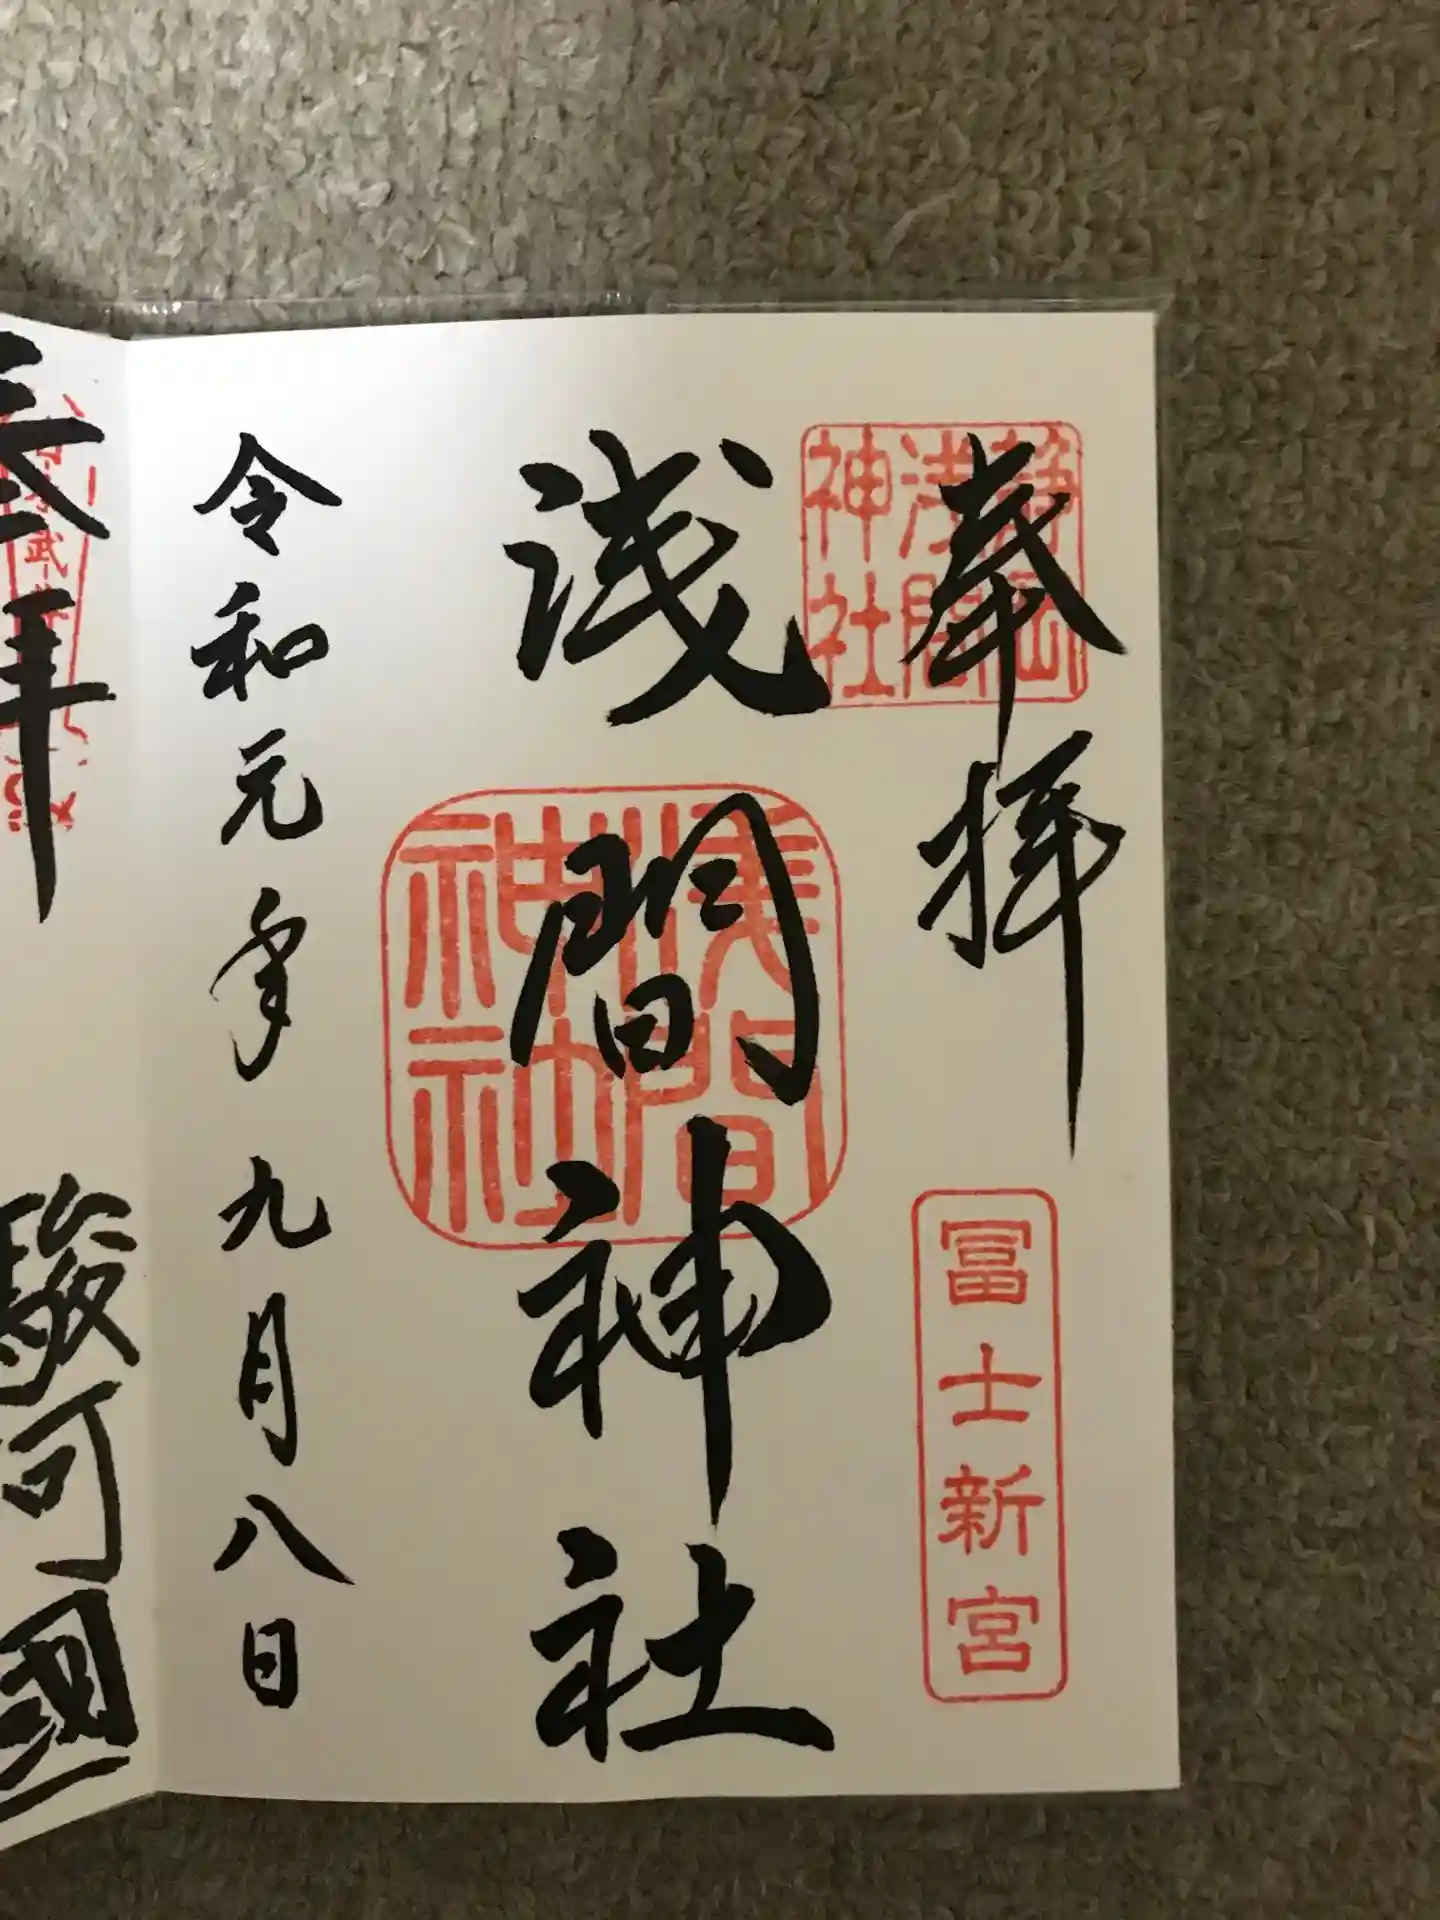 奉拝
静岡
浅間
神社
冨士新宮
浅間神社
浅間
神社
令和元年九月八日
拝
武
駿河國